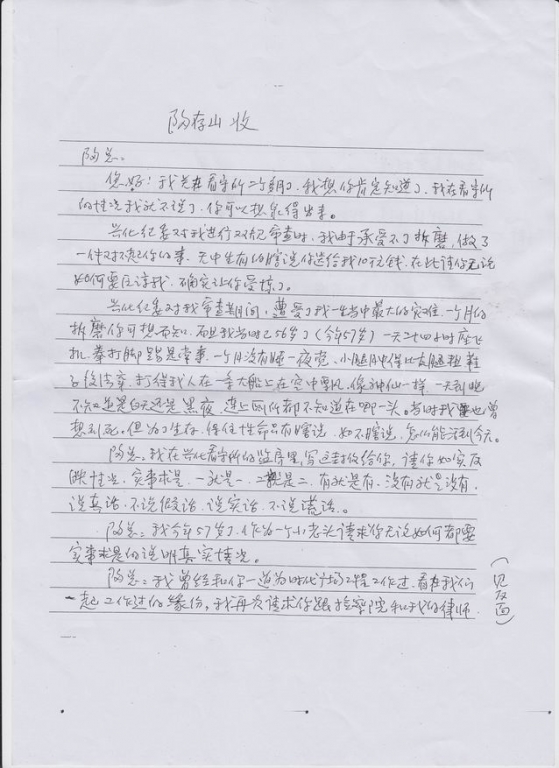 陶存山 收
陶总：
您好！我关在看守所二个多月了，我想你肯定知道了，我在看守所
的情况我就不说了，你可以想象得出来。
兴化纪委对我进行双规审查时，我由于承受不了折磨，做了
一件对不起你的事，无中生有的瞎说你送给我10万元钱，在此请你无论
如何要原谅我，确实让你受惊了。
兴化纪委对我审查期间，遭受了我一生当中最大的灾难，一个月的
折磨你可想而知，而且我当时已56岁了（今年57岁）一天二十四小时座飞
机，拳打脚踢是常事，一个月没有睡一夜觉，小腿肿得比大腿粗，鞋
子没法穿，打得我人在一条大船上在空中飘，像神仙一样，一天到晚
不知道是白天还是黑夜，连上厕所都不知道在哪一头。当时我也曾
想到死，但为了生存，保住性命只有瞎说，如不瞎说，怎么能活到今天。
陶总：我在兴化看守所的监房里，写这封信给你，请你如实反
映情况，实事求是，一就是一，二就是二，有就是有，没有就是没有，
说真话，不说假话，说实话，不说谎话。
陶总：我今年57岁了，作为一个小老头请求你无论如何都要
实事求是的说明真实情况。
陶总：我曾经和你一道为时代广场工程工作过，看在我们
一起工作过的缘份，我再次请求你跟检察院和我的律师
（见反面）